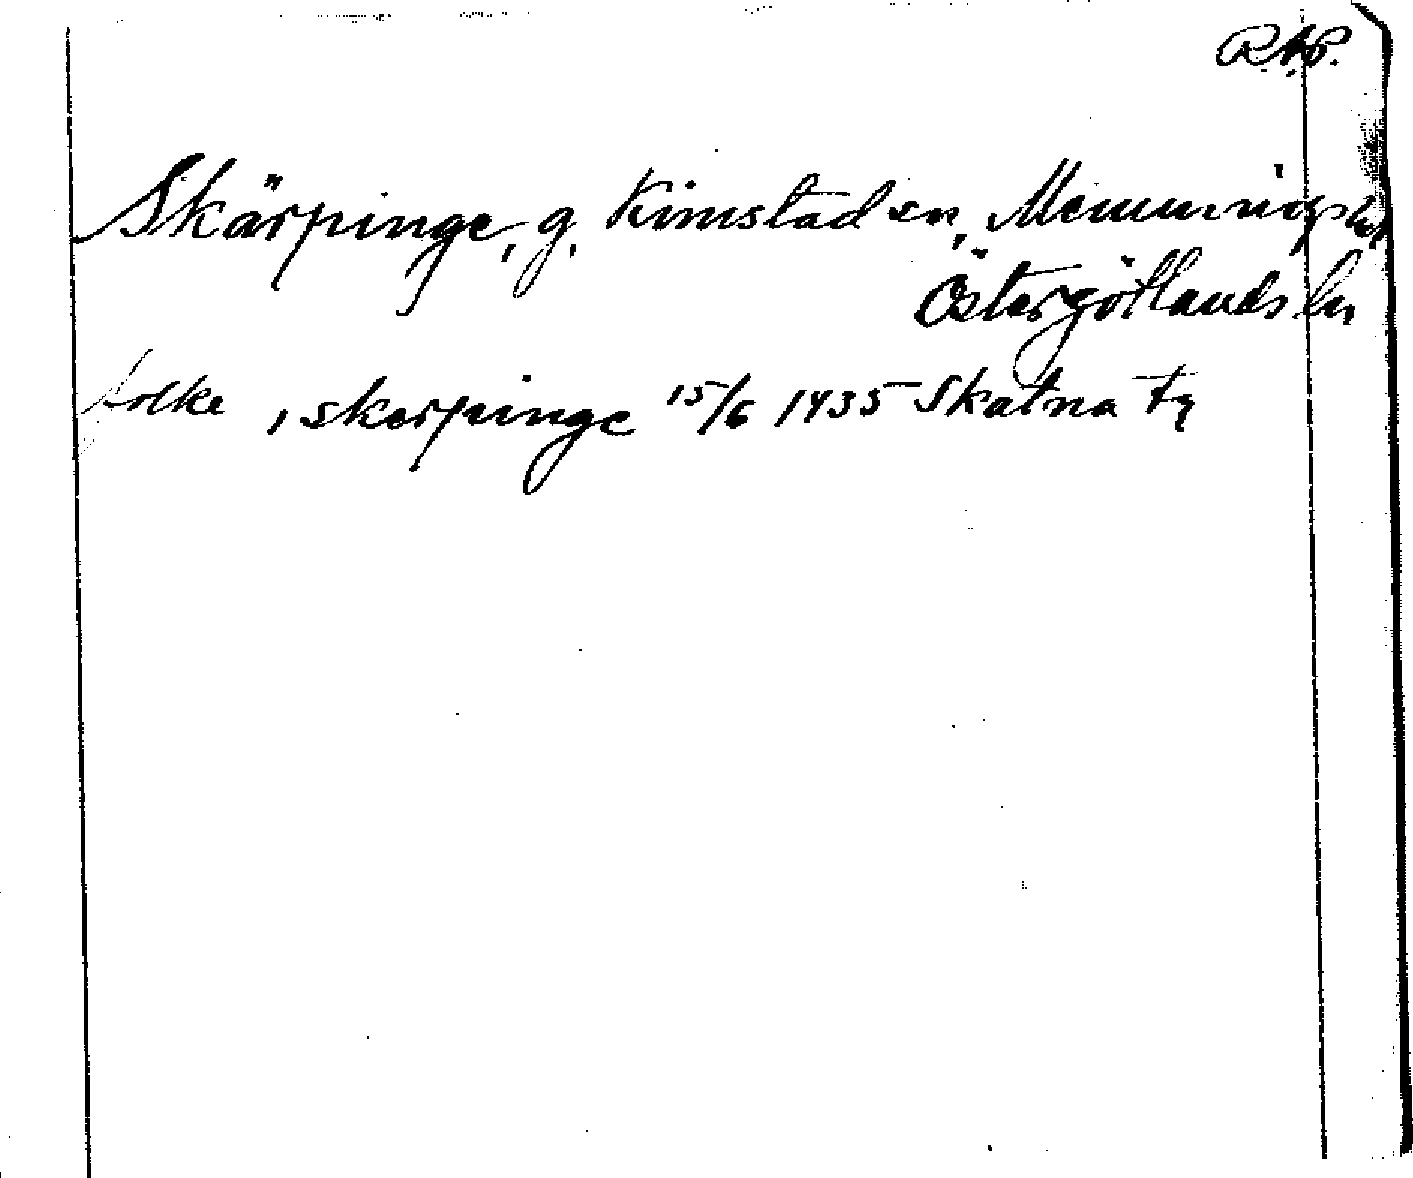 R.A.P.
Skärpinge, g. Kimstad sn, Memmings hd,
Östergötlands ln
Folke i skerpinge 15/6 1435 Skatna